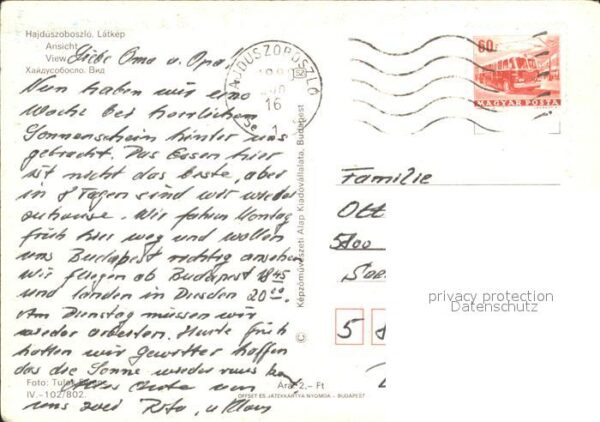 Hajdúszoboszló. Látkép
Ansicht
View
Хайдусобосло. Вид
Liebe Oma u. Opa
Nun haben wir eine
Woche bei herrlichen
Sonnenschein hinter uns
gebracht. Das Essen hier
ist nicht das beste, aber
in 8 Tagen sind wir wieder
zuhause. Wir fahren Montag
früh hier weg und wollen
uns Budapest richtig ansehen
wir fliegen ab Budapest 18 45
und landen in Dresden 20 00.
Am Dienstag müssen wir
wieder arbeiten. Heute früh
hatten wir Gewitter hoffen
das die Sonne wieder raus
Alles Gute von
uns zwei Rita, u Klaus
Foto: Tulok
IV.–102/802.
Ára: 2,– Ft
OFFSET ÉS JÁTÉKKÁRTYA NYOMDA – BUDAPEST
© Képzőművészeti Alap Kiadóvállalata, Budapest
HAJDUSZOBOSZLÓ
16
1
60f
MAGYAR POSTA
Familie
Ott
privacy protection
Datenschutz
5